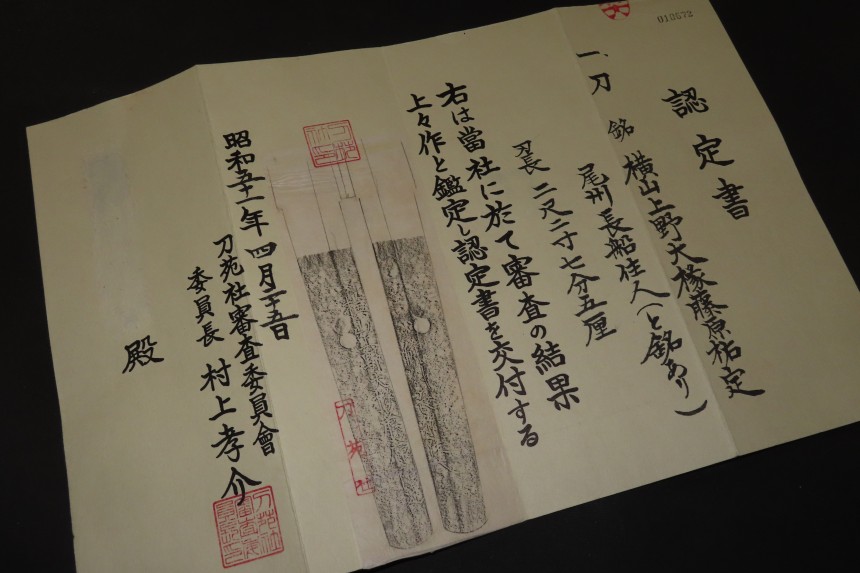 018673
認定書
一、刀 銘 横山上野大掾藤原祐定
尾州長船住人(と銘あり)
刄長 二尺二寸七分五厘
右は當社に於て審査の結果
上々作と鑑定し認定書を交付する
昭和五十一年四月二十五日
刀苑社審査委員會
委員長 村上孝介
殿
刀苑社